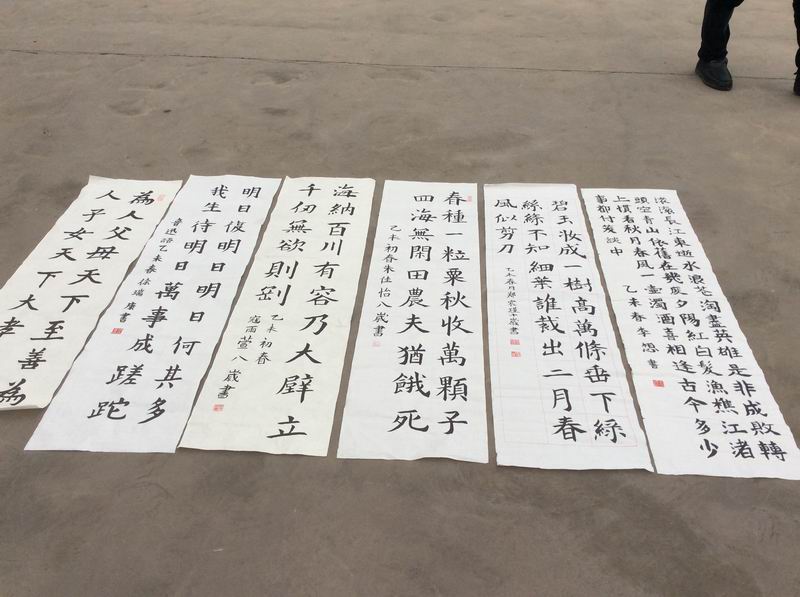 滚滚長江東逝水浪花淘盡英雄是非成敗轉
頭空青山依舊在幾度夕陽紅白髮漁樵江渚
上慣看秋月春風一壺濁酒喜相逢古今多少
事都付笑談中
乙未春李書
碧玉妝成一樹高萬條垂下綠
絲絲不知細葉誰裁出二月春
風似剪刀
乙未春月鄭雲瑾十歲書
春種一粒粟秋收萬顆子
四海無閑田農夫猶餓死
乙未初春朱佳怡八歲書
海納百川有容乃大壁立
千仞無欲則剛
乙未初春
寇雨萱八歲書
明日復明日明日何其多
我生待明日萬事成蹉跎
魯迅語乙未春徐瑞康書
為人父母天下至善為
人子女天下大孝